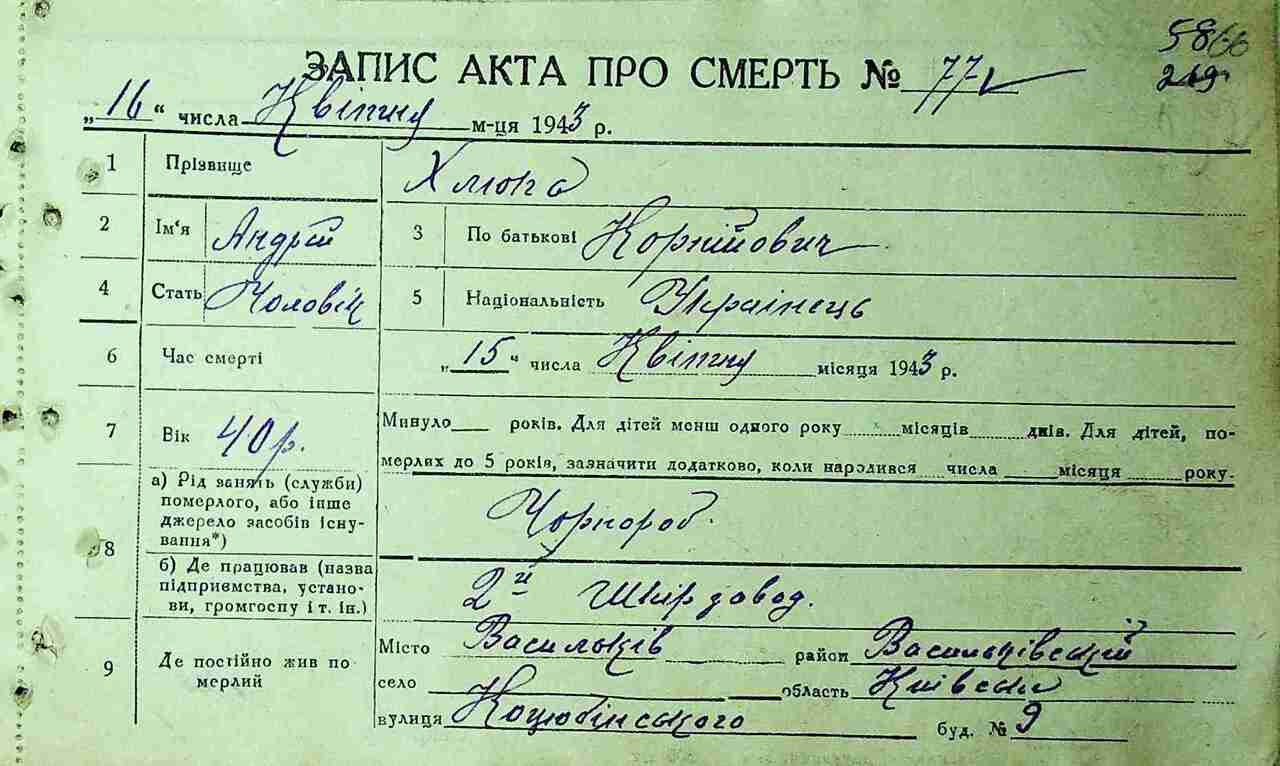 5866
219
ЗАПИС АКТА ПРО СМЕРТЬ № 77
„16“ числа Квітня м-ця 1943 р.
1 Прізвище Хлюпа
2 Ім'я Андрій 3 По батькові Корнійович
4 Стать Чоловік 5 Національність Украінець
6 Час смерті „15“ числа Квітня місяця 1943 р.
7 Вік 40 р. Минуло років. Для дітей менш одного року місяців днів. Для дітей, по-
мерлих до 5 років, зазначити додатково, коли народився числа місяця року.
8 а) Рід занять (служби)
померлого, або інше
джерело засобів існу-
вання*) Чорнороб.
б) Де працював (назва
підприємства, устано-
ви, громгоспу і т. ін.) 2й Шкір завод.
9 Де постійно жив по
мерлий
Місто Васильків район Васильківський
село область Київська
вулиця Коцюбінського буд. № 9